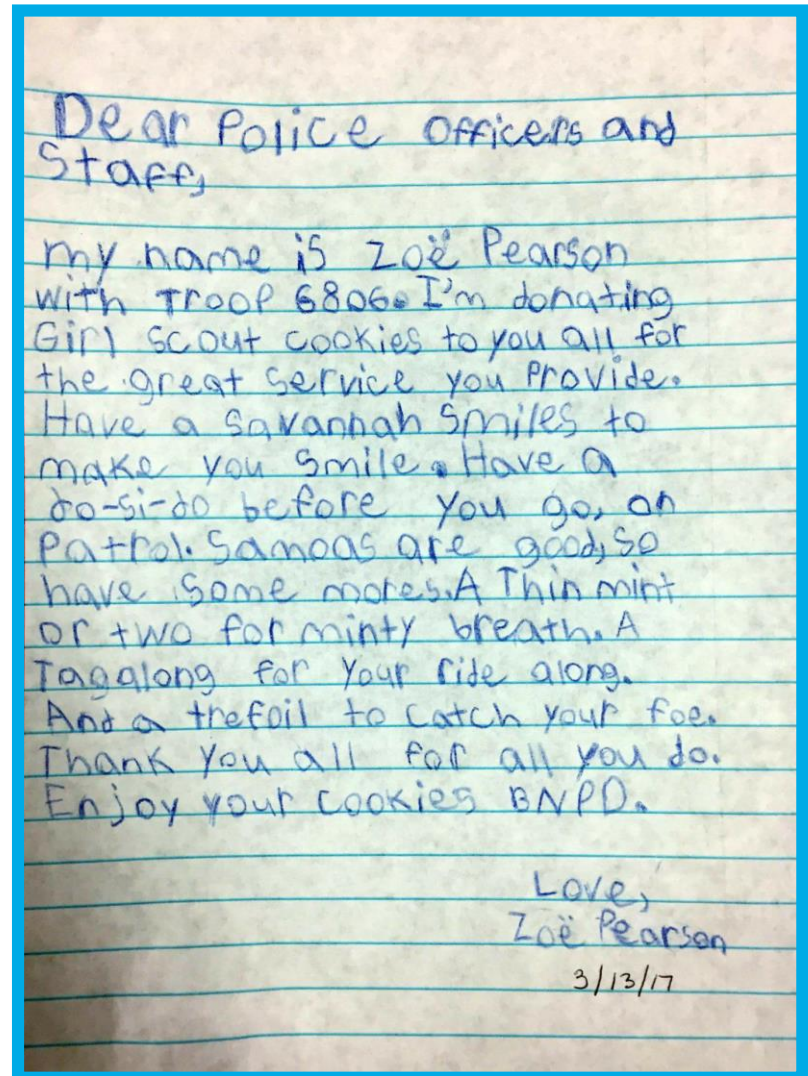 Dear Police Officers and
Staff,
my name is Zoë Pearson
with Troop 6806. I'm donating
Girl Scout cookies to you all for
the great service you Provide.
Have a Savannah Smiles to
make you smile. Have a
do-si-do before you go, on
Patrol. Samoas are good, so
have some mores. A Thin mint
or two for minty breath. A
Tagalong for Your ride along.
And a trefoil to catch your foe.
Thank You all for all you do.
Enjoy your Cookies BNPD.
Love,
Zoë Pearson
3/13/17